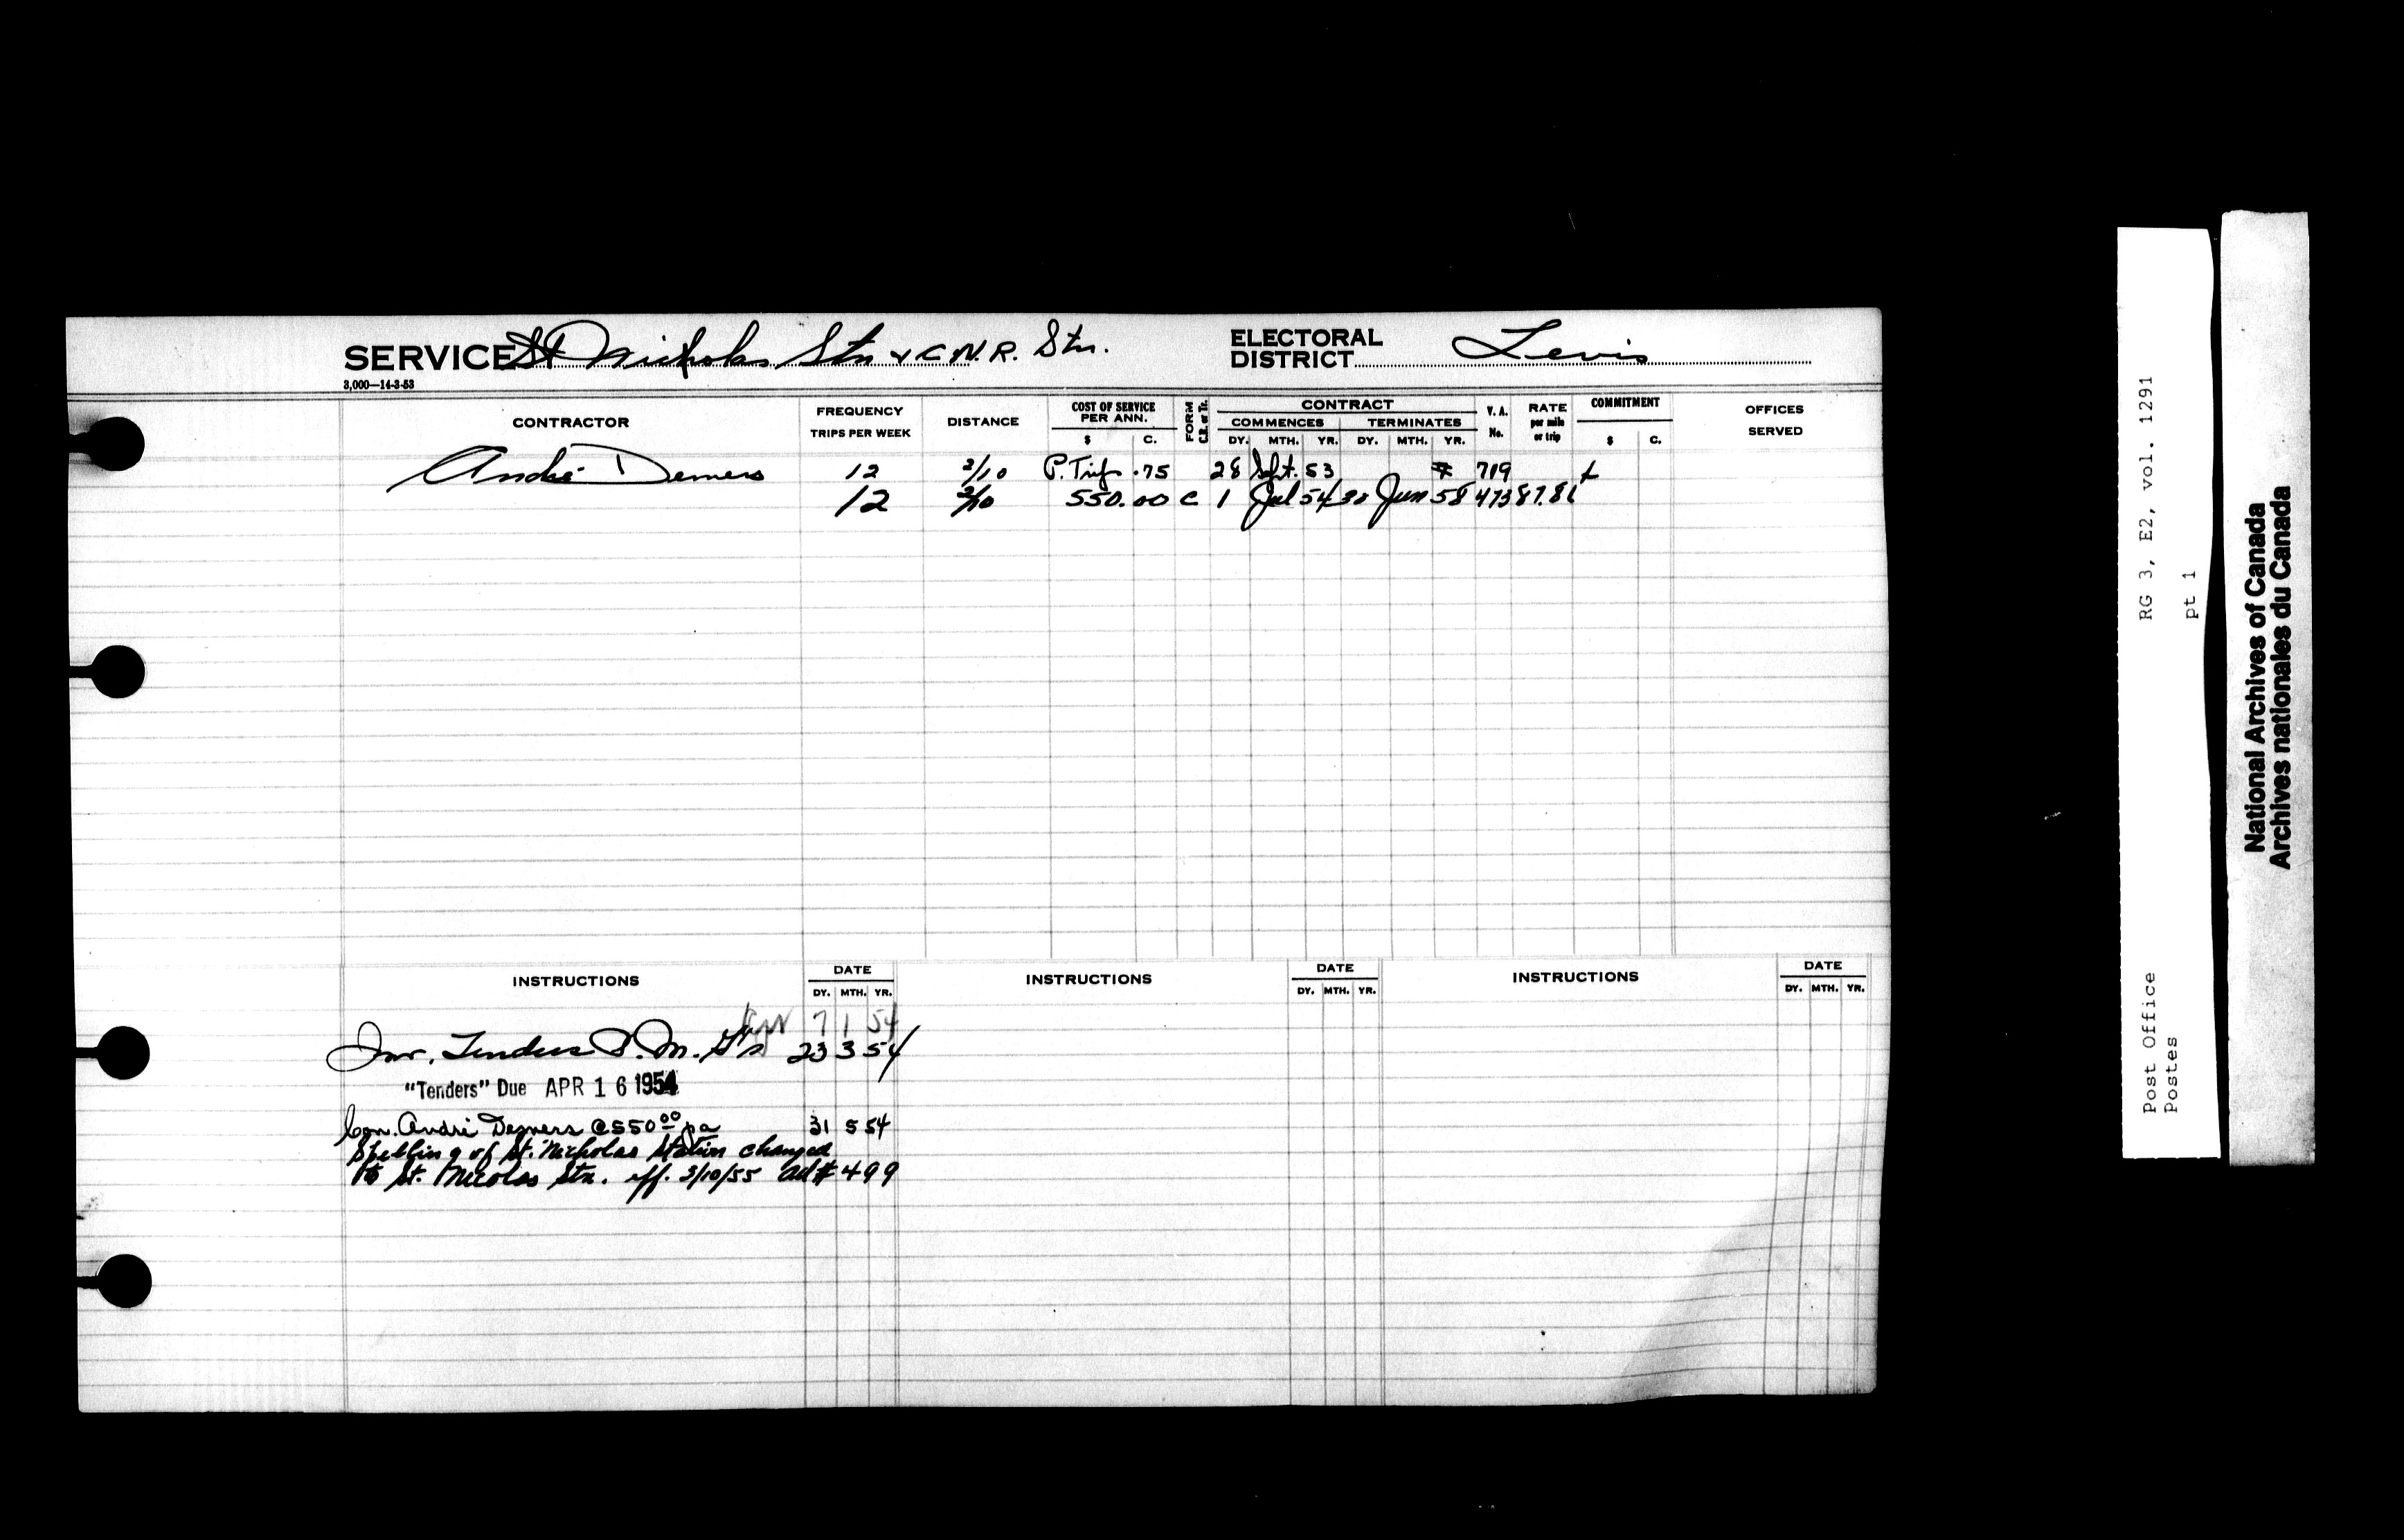 SERVICE St Nicholas Stn & C.N.R. Stn. ELECTORAL DISTRICT Levis
3,000—14-3-53
CONTRACTOR FREQUENCY TRIPS PER WEEK DISTANCE COST OF SERVICE PER ANN. $ C. FORM C.R. or Tr. CONTRACT COMMENCES DY. MTH. YR. TERMINATES DY. MTH. YR. V. A. No. RATE per mile or trip COMMITMENT $ C. OFFICES SERVED
André Demers 12 2/10 P. Trip .75 28 Sept. 53 719
12 2/10 550.00 C 1 Jul 54 30 Jun 58 473 87.81
INSTRUCTIONS DATE DY. MTH. YR. INSTRUCTIONS DATE DY. MTH. YR. INSTRUCTIONS DATE DY. MTH. YR.
7 1 54
Inv. Tenders P.M. G's 23 3 54
"Tenders" Due APR 16 1954
Con. André Demers @ 550.00 pa 31 5 54
Spelling of St. Nicholas Station changed
to St. Nicolas Stn. eff. 3/10/55 #499
RG 3, E2, vol. 1291
pt 1
Post Office
Postes
National Archives of Canada
Archives nationales du Canada